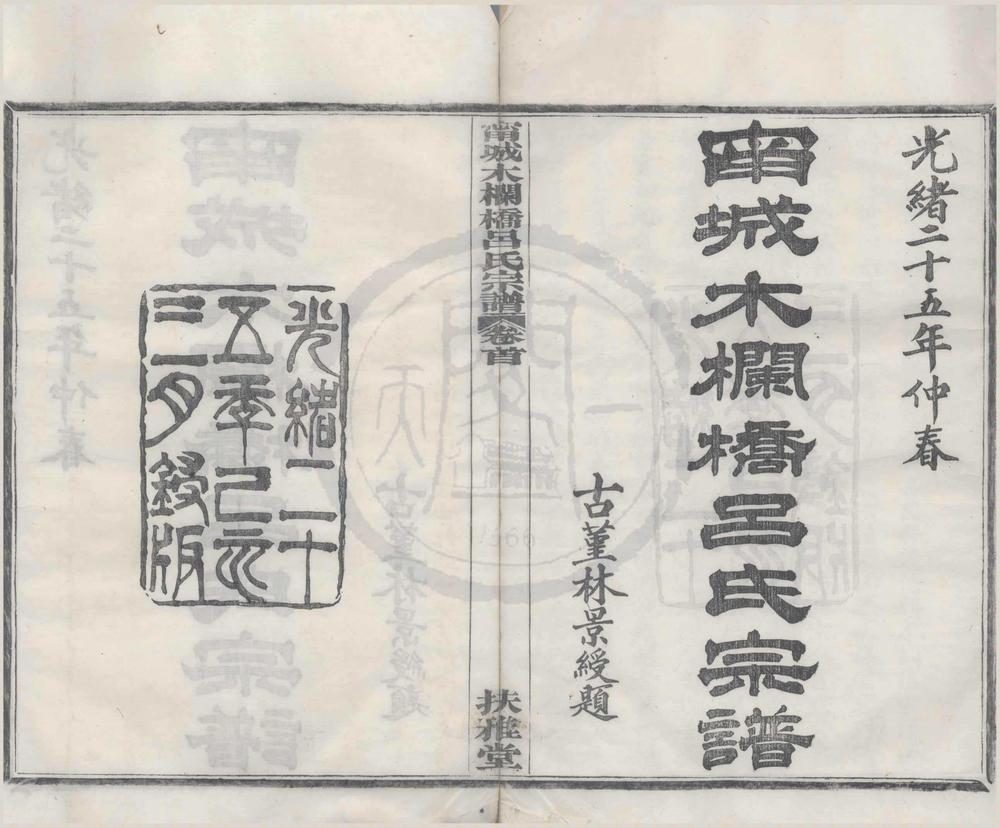 光緒二十五年仲春
甯城木欄橋呂氏宗譜
古堇林景綬題
甯城木欄橋呂氏宗譜 卷首 扶雅堂
光緒二十
五年己亥
二月鋟版
天一閣
1566